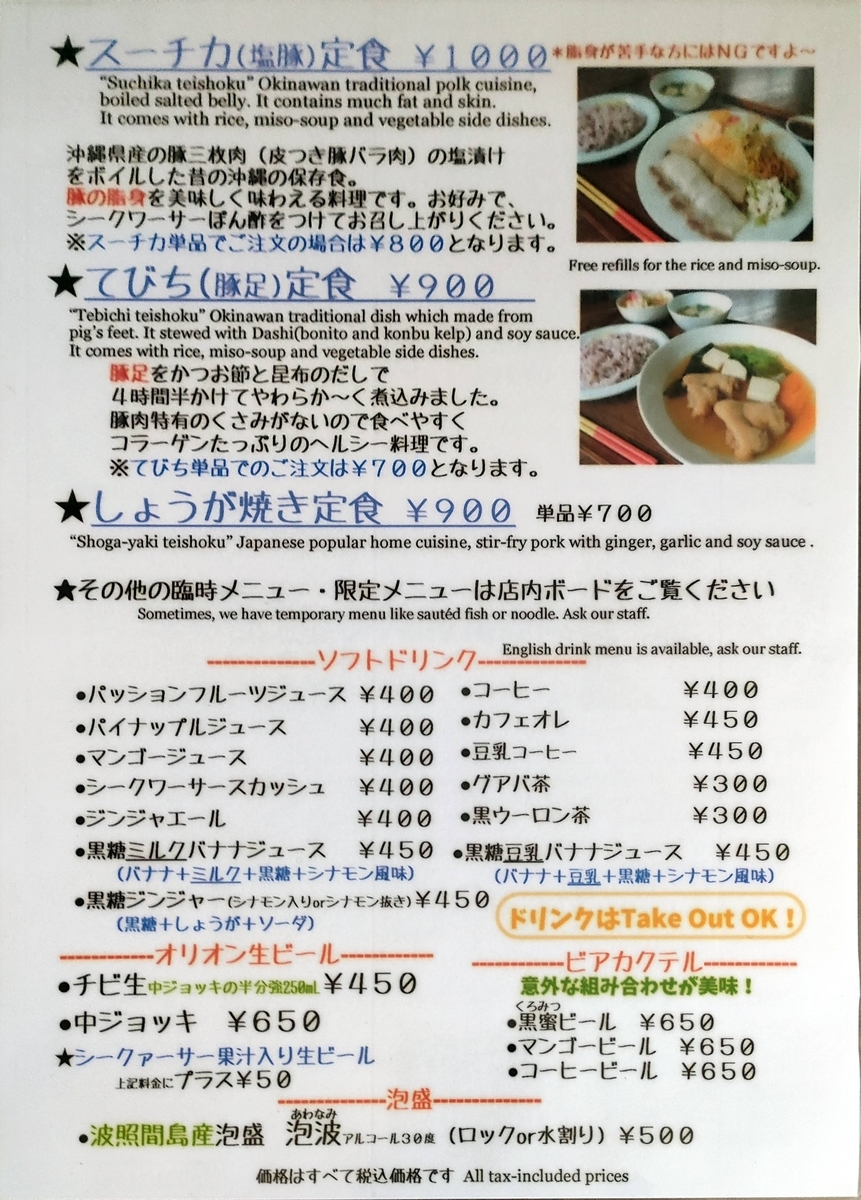 ★スーチカ(塩豚)定食 ¥1000 *脂身が苦手な方にはNGですよ～
"Suchika teishoku" Okinawan traditional polk cuisine,
boiled salted belly. It contains much fat and skin.
It comes with rice, miso-soup and vegetable side dishes.
沖縄県産の豚三枚肉（皮つき豚バラ肉）の塩漬け
をボイルした昔の沖縄の保存食。
豚の脂身を美味しく味わえる料理です。お好みで、
シークワーサーぽん酢をつけてお召し上がりください。
※スーチカ単品でご注文の場合は¥800となります。
Free refills for the rice and miso-soup.
★てびち(豚足)定食 ¥900
"Tebichi teishoku" Okinawan traditional dish which made from
pig's feet. It stewed with Dashi(bonito and konbu kelp) and soy sauce.
It comes with rice, miso-soup and vegetable side dishes.
豚足をかつお節と昆布のだしで
4時間半かけてやわらか～く煮込みました。
豚肉特有のくさみがないので食べやすく
コラーゲンたっぷりのヘルシー料理です。
※てびち単品でのご注文は¥700となります。
★しょうが焼き定食 ¥900 単品¥700
"Shoga-yaki teishoku" Japanese popular home cuisine, stir-fry pork with ginger, garlic and soy sauce .
★その他の臨時メニュー・限定メニューは店内ボードをご覧ください
Sometimes, we have temporary menu like sautéd fish or noodle. Ask our staff.
English drink menu is available, ask our staff.
--------------ソフトドリンク--------------
●パッションフルーツジュース ¥400
●パイナップルジュース ¥400
●マンゴージュース ¥400
●シークワーサースカッシュ ¥400
●ジンジャエール ¥400
●黒糖ミルクバナナジュース ¥450
（バナナ＋ミルク＋黒糖＋シナモン風味）
●黒糖ジンジャー(シナモン入りorシナモン抜き) ¥450
（黒糖＋しょうが＋ソーダ）
●コーヒー ¥400
●カフェオレ ¥450
●豆乳コーヒー ¥450
●グアバ茶 ¥300
●黒ウーロン茶 ¥300
●黒糖豆乳バナナジュース ¥450
（バナナ＋豆乳＋黒糖＋シナモン風味）
ドリンクはTake Out OK！
------------オリオン生ビール------------
●チビ生中ジョッキの半分強250mL ¥450
●中ジョッキ ¥650
★シークァーサー果汁入り生ビール
上記料金にプラス¥50
------------ビアカクテル------------
意外な組み合わせが美味！
くろみつ
●黒蜜ビール ¥650
●マンゴービール ¥650
●コーヒービール ¥650
--------------泡盛--------------
あわなみ
●波照間島産泡盛 泡波アルコール30度（ロックor水割り）¥500
価格はすべて税込価格です All tax-included prices